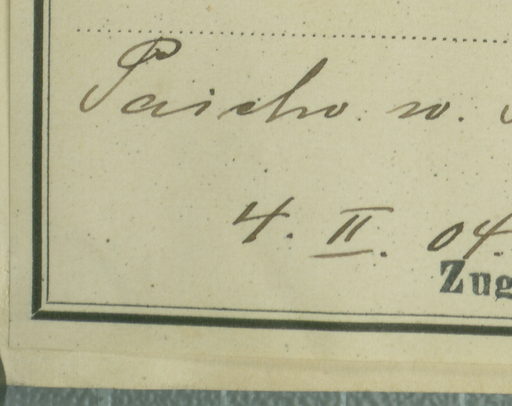 Paicho. w.
4. II. 04.
Zug